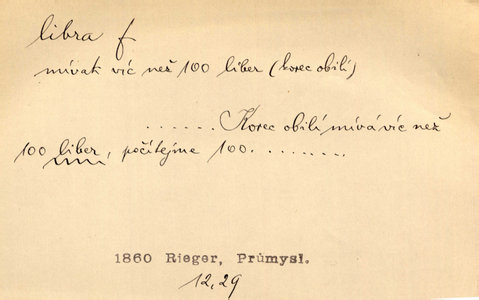 libra f
mívak víc než 100 liber (korec obilí)
...... Korec obilí mívá víc než
100 liber, počítejme 100. .......
1860 Rieger, Průmysl.
12,29